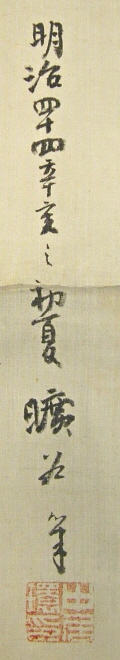 明治四十四辛亥之初夏 曠谷筆